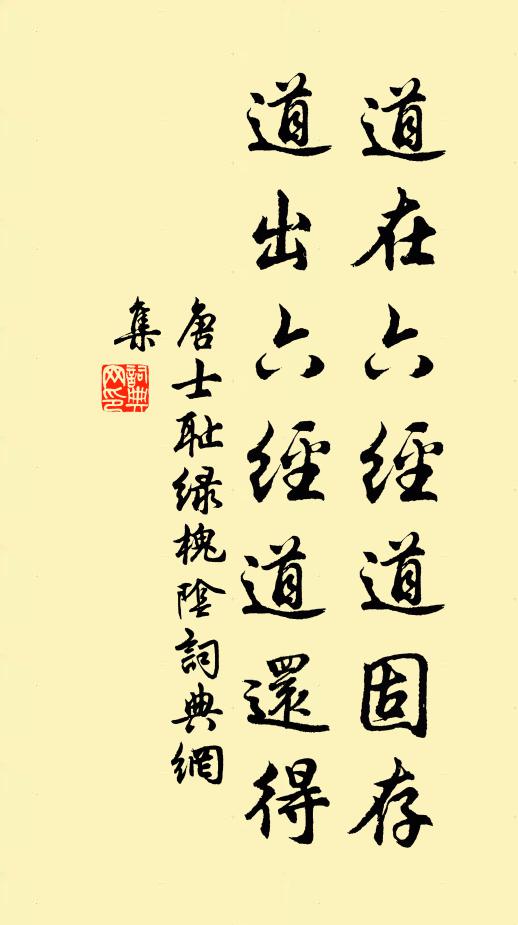 道在六經道固存
道出六經道還得
唐士耻緑槐陰詞典網
集
詞典
网印